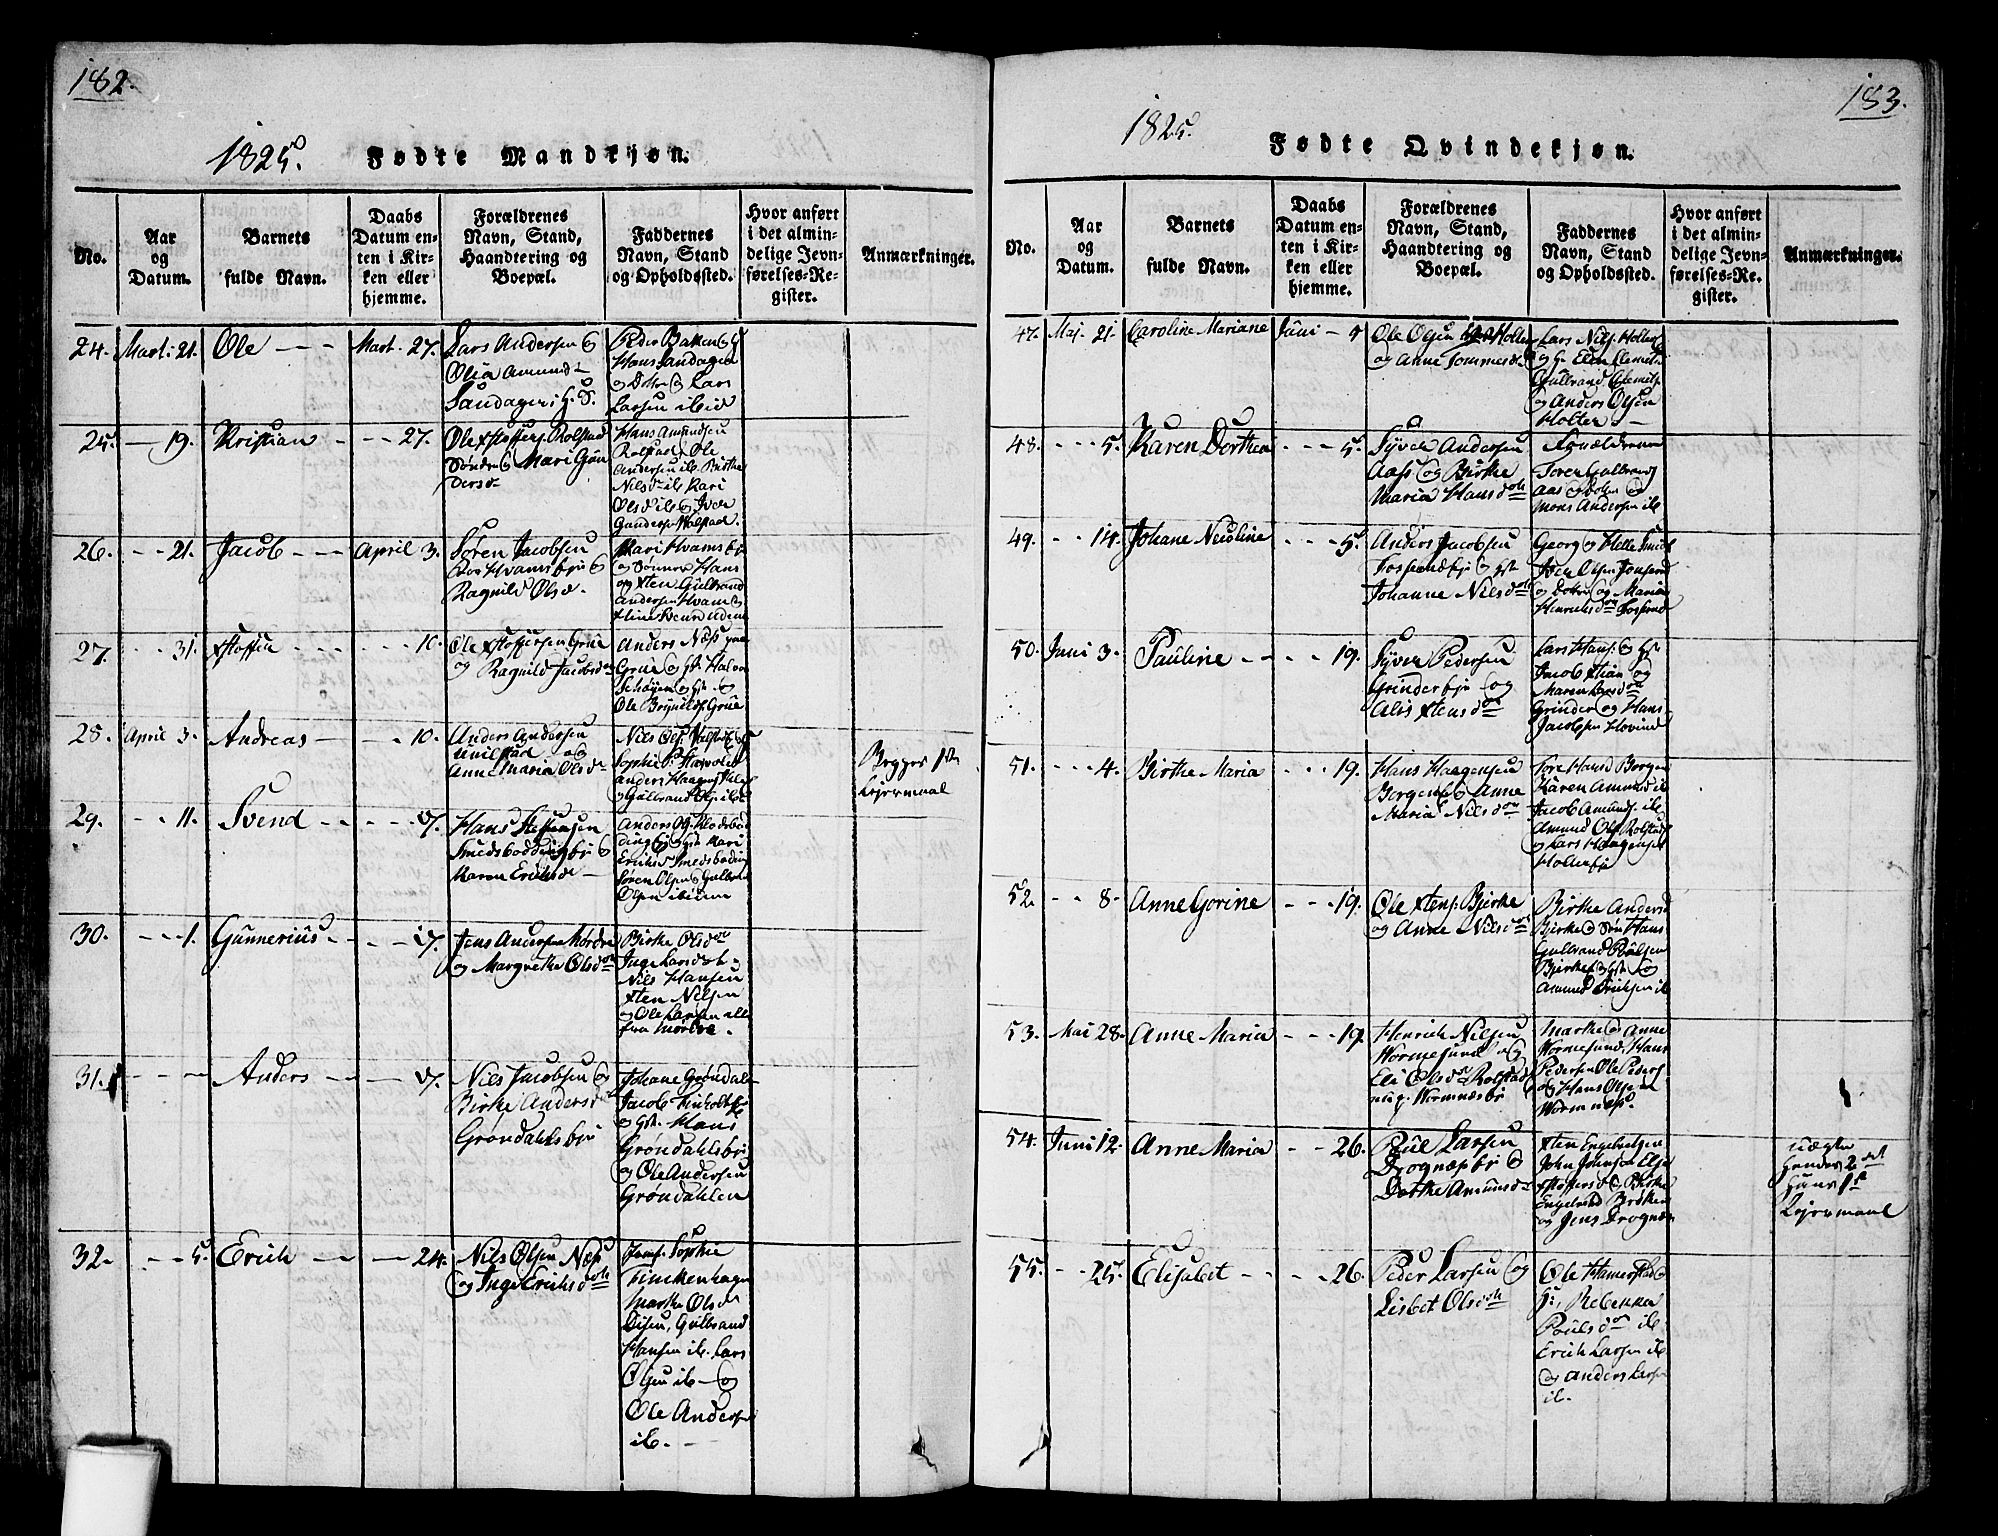 182.
1825.
Fødte Mandkjøn.
No.
Aar
og
Datum.
Barnets
fulde Navn.
Daabs
Datum en-
ten i Kir-
ken eller
hjemme.
Forældrenes
Navn, Stand,
Haandtering og
Boepæl.
Faddernes
Navn, Stand
og Opholdssted.
Hvor anført
i det almin-
delige Jevn-
førelses-Re-
gister.
Anmærkninger.
24. Mart. 21. Ole Mart. 27.
Lars Andersen og
Olia Amunds
Sandager i H. S.
Peder Baken og H
Hans Sandager
og Dotter og Lars
Larsen ibid
25. - 19. Kristian - - - 27.
Ole Stoffers. Rolstad
Søndre og Mari Gun
dersd
Hans Amundsen
Rolstad, Ole
Andersen ib. Birthe
Nilsd ib. Kari
Olsd ib og Iver
Gunders. Walstad.
26. - - 21. Jacob - - - April 3.
Søren Jacobsen
Hvamsbye og
Ragnild Olsd.
Mari Hvamsby
og Sønner Hans
og Xten Gulbrand
Andersen Hvam og
27. - - 31. Xstoffer - - - - 10.
Ole Xstoffersen Grue
og Ragnild Jacobsd
Anders Næss
Grue og Hst. Halvor
Schøyen og Hst. og
Ole Brynilds. Grue
28. April 3. Andreas - - - 10.
Anders Andersen
Ullistad og
Anne Maria Olsd
Nils Ols. Walstad og
Sophie P. Harvold
Anders Haagens.
og Gulbrand Ols. ibd
Begges 1ste
Leiermaal
29. - - 11. Svend - - - - - 17.
Hans Steffensen
Smedsbøddingbye og
Maren Eriksd
Anders Og. Klodsbød
ding og Hst. Kari
Eriksd Smedsbøding
Søren Olsen og Gulbrand
Olsen ibidem
30. - - - 1. Gunnerius - - - - 17.
Jens Andersen Mørdre
og Margrethe Olsd
Birthe Olsd
Inge Larsd
Nils Hansen
Xten Nilsen
og Ole Larsen alle
fra Mørdre.
31. - - - Anders - - - 17.
Nils Jacobsen og
Birthe Andersd
Grøndahlsbye
Johane Grøndale
Jacob Finholt
og Hst. Hans
Grøndahlsbye
og Ole Andersen
Grøndahlen
32. - - - 5. Erich - - - 24.
Nils Olsen Næss
og Inge Eriksd
Jomf. Sophie
Finckenhagen
Marthe Olsd
Disen, Gulbrand
Hansen ib. Lars
Olsen ib - og
Ole Anders.
ib. -
183.
1825.
Fødte Qvindekjøn.
No.
Aar
og
Datum.
Barnets
fulde Navn.
Daabs
Datum en-
ten i Kir-
ken eller
hjemme.
Forældrenes
Navn, Stand,
Haandtering og
Boepæl.
Faddernes
Navn, Stand
og Opholdssted.
Hvor anført
i det almin-
delige Jevn-
førelses-Re-
gister.
Anmærkninger.
47. Maj. 21. Caroline Mariane Juni - 5
Ole Olsen Holter
og Anne Tommesd
Lars Nils. Holter
og H. Elen Clemets
Gulbrand Clemets
og Anders Olsen
Holter. -
48. - - - 5. Karen Dorthea - - - 5.
Syver Andersen
Aass og Birthe
Maria Hansd
Forældrene
Toren Gulbrands
Aas og
Mons Andersen ib
49. - - 14. Johane Neuline - - - 5.
Anders Jacobsen
Fosserudbye og Hst
Johanne Nilsd
Georg og Helle Smed
Iver Olsen Fosserud
og Dotter og Maria
Henrichsd Fosserud
50. Juni 3. Pauline - - - - 19.
Syver Pedersen
Grinderbye og
Alis Xtensd
Lars Hans. og Hst
Jacob Xtian og
Maren Larsd
Grinder og Hans
Jacobsen Hovind
51. - - - 4. Birthe Maria - - - 19.
Hans Haagensen
Borgen og Anne
Maria Nilsd
Tore Hansd Borgen
Karen Amunds ib
Jacob Amunds. ib
Amund Ols. Rolstad
og Lars Haagensen
Holterbye
52. - - 8. Anne Gorine - - - 19.
Ole Xtens. Bjerke
og Anne Nilsd
Birthe Andersd
Bjerke og Søn Hans
Gulbrand Poulsen
Bjerke og Hst og
Amund Eriksen ib
53. Mai 28. Anne Maria - - - 19.
Henrich Nilsen
Wormesund og
Eli Olsd Rolstad
nu p. Wormnesbye
Marthe og Anne
Wormesund, Hans
Pedersen Ole Peders.
og Hans Olsen
Wormnæss.
54. Juni 12. Anne Maria - - 26.
Poul Larsen
Drognæsbye og
Dorthe Amunds
Xten Engebretsen
John Johnsen Else
Xstoffersd og Birthe
Engelstad Bråthen
og Jens Drognæs
uægte
Hendes 2det
Hans 1ste
Leiermaal
55. - - 25. Elisabet - - - 26.
Peder Larsen og
Lisbet Olsd
Ole Hamerstad og
H:, Rebekka
Poulsd ib
Erich Larsen ib
og Anders Larsen
ib.